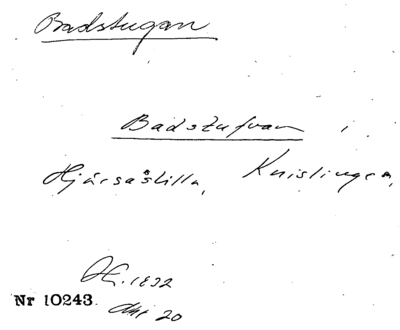 Badstugan
Badstufvan i
Hjärsåslilla, Knislingen,
1832
Nr 10243
20